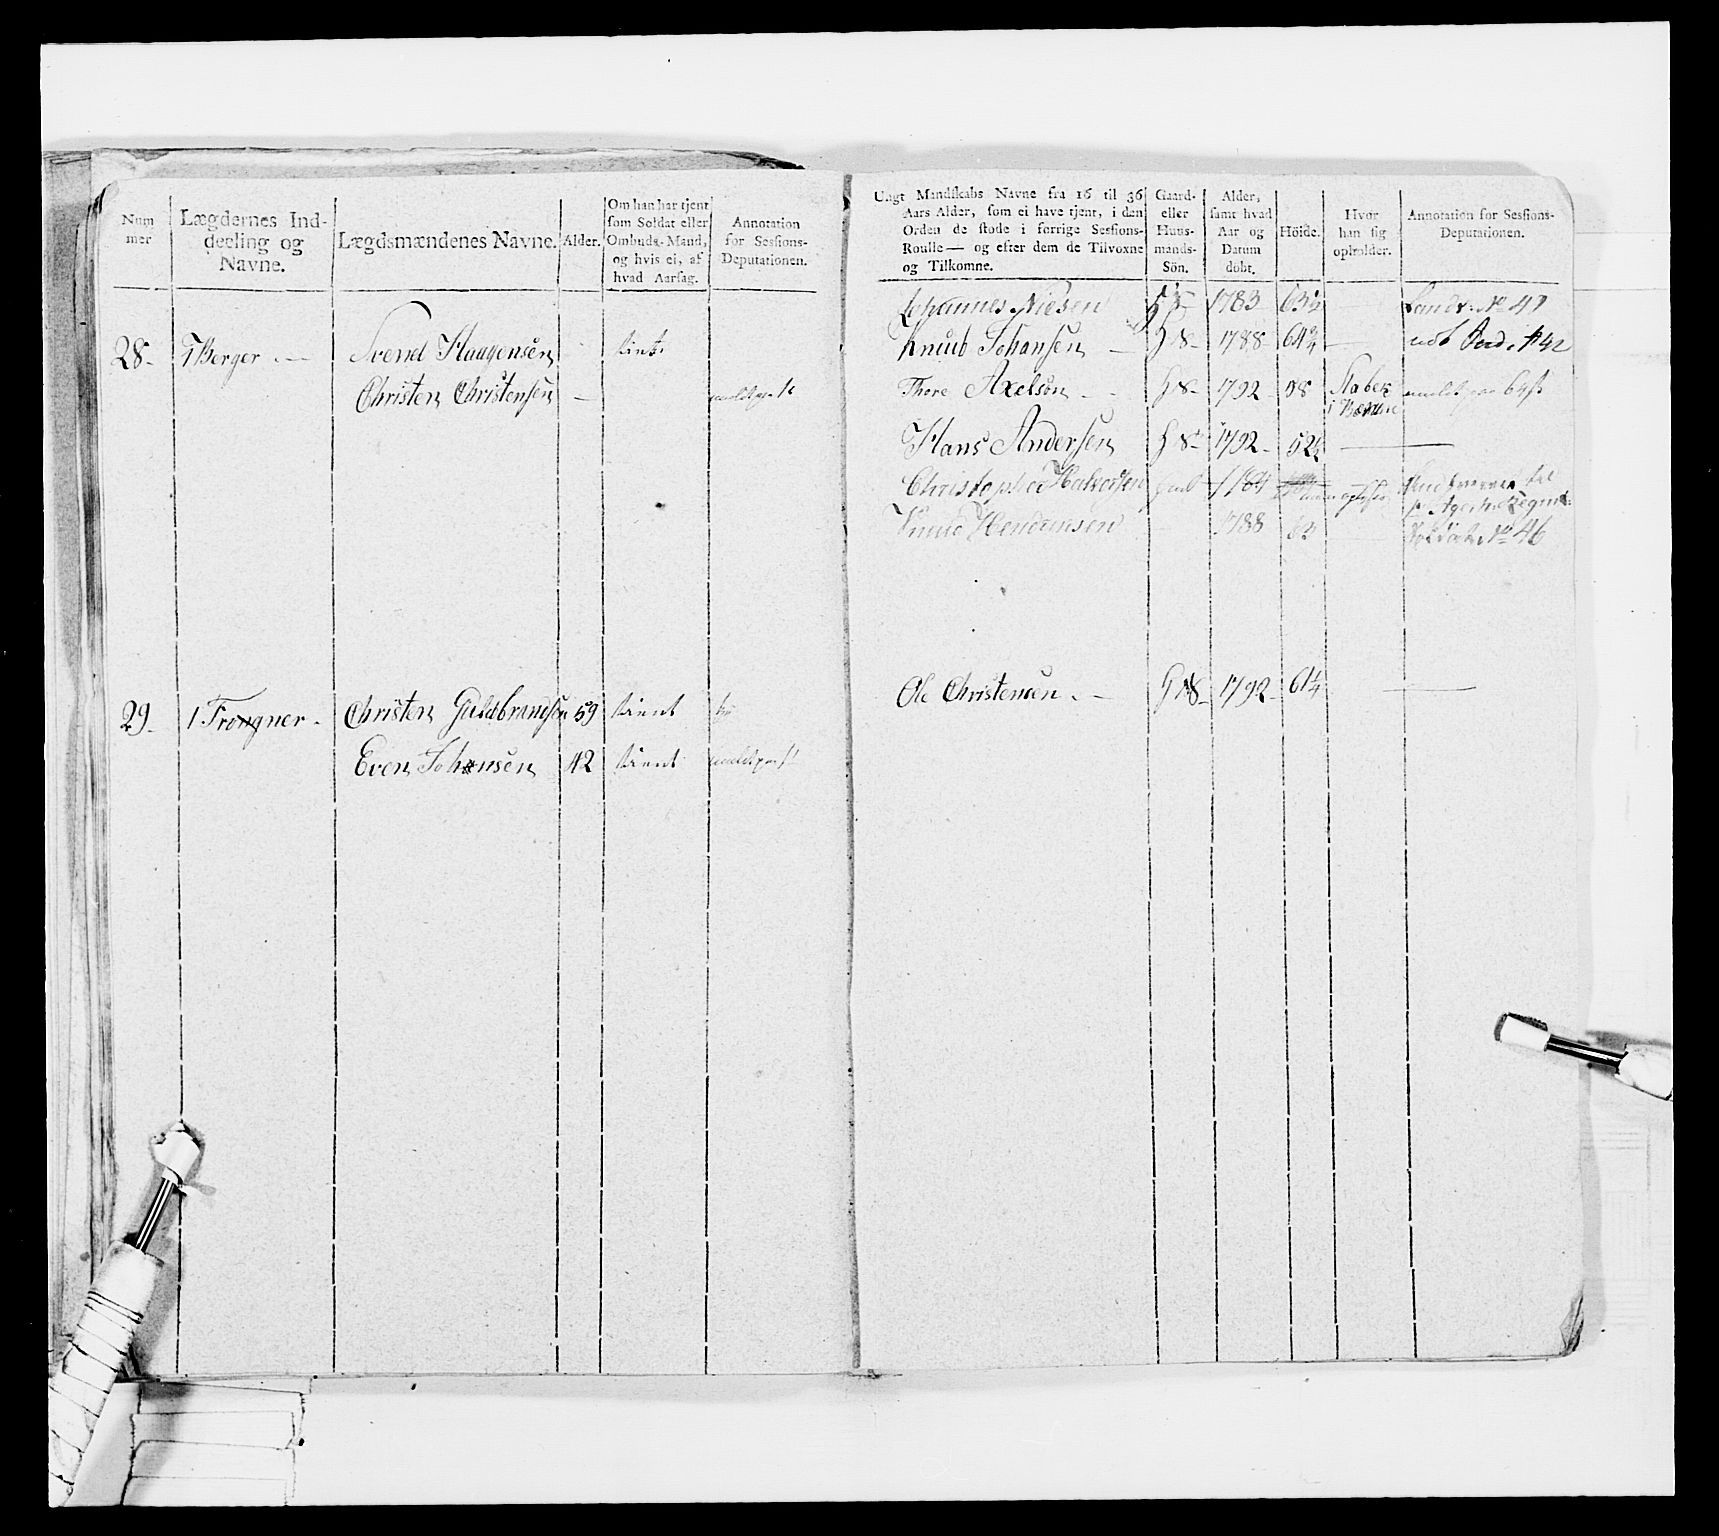 Num
mer
Lægdernes Ind-
deeling og
Navne.
Lægdsmændenes Navne.
Alder.
Om han har tjent
som Soldat eller
Ombuds-Mand,
og hvis ei, af
hvad Aarsag.
Annotation
for Sessions-
Deputationen.
28-
1 Berger
Svend Haagensen
tient
Christen Christensen
29-
1. Frongner
Christen Guldbrandsen 59 tient
Even Johansen 42 tient
Ungt Mandskabs Navne fra 16 til 36
Aars Alder, som ei have tjent, i den
Orden de stode i forrige Sessions-
Roulle— og efter dem de Tilvoxne
og Tilkomne.
Gaard-
eller
Huus-
mands-
Sön.
Alder,
samt hvad
Aar og
Datum
döbt.
Höide.
Hvor
han sig
opholder.
Annotation for Sessions-
Deputationen.
Johannes Nielsen 1783 63½ Landv. No 41
Knud Johansen 1788 64¾ udt No 42
Thore Axelsön 1792 58 Stabek
i Bærum
Hans Andersen 1792 52½
Christopher Halvorsen
Regim:
Knud 1788 62 No 46
Ole Christensen 1792 61¼